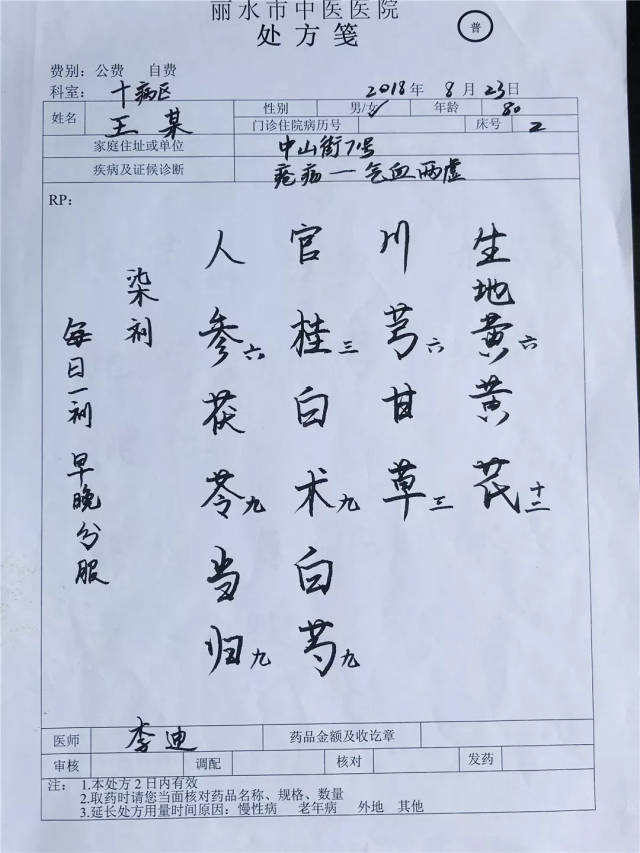 丽水市中医医院
处方笺
普
费别：公费 自费
科室：十病区 2018年8月23日
姓名 王某 性别 男/女 年龄 80
门诊住院病历号 床号 2
家庭住址或单位 中山街71号
疾病及证候诊断 疮疡—气血两虚
RP：
生地黄六 黄芪十二
川芎六 甘草三
官桂三 白术九 白芍九
人参六 茯苓九 当归九
柒剂
每日一剂 早晚分服
医师 李迪 药品金额及收讫章
审核 调配 核对 发药
注： 1.本处方2日内有效
2.取药时请您当面核对药品名称、规格、数量
3.延长处方用量时间原因：慢性病 老年病 外地 其他